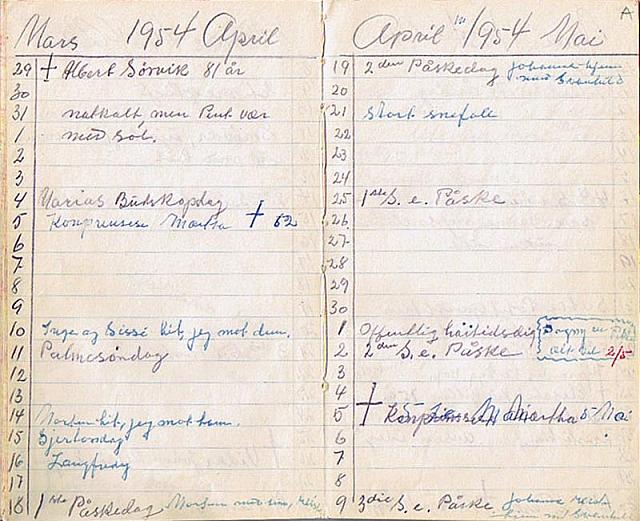 Mars 1954 April
29 + Albert Sörvik 81 år
30
31 natkalt, men Pent vær
1 med sol.
2
3
4 Marias Budskapdag
5 Kronprinsesse Martha + 52
6
7
8
9
10 Inge og Sissé hit, jeg mot dem.
11 Palmesöndag
12
13
14 Morten hit, jeg mot ham.
15 Sjertorsdag
16 Langfredag
17
18 1ste Påskedag Morten
April 1954 Mai
A
19 2den Påskedag Johanne hjem
med Svanhild
20
21 Stort snefall
22
23
24
25 1ste S. e. Påske
26
27
28
29
30
1 Offentlig höitidsdag
2 2den S. e. Påske 2/5
3
4
5 + Martha 5 Mai
6
7
8
9 3die S. e. Påske Johanne
hjem med Svanhild